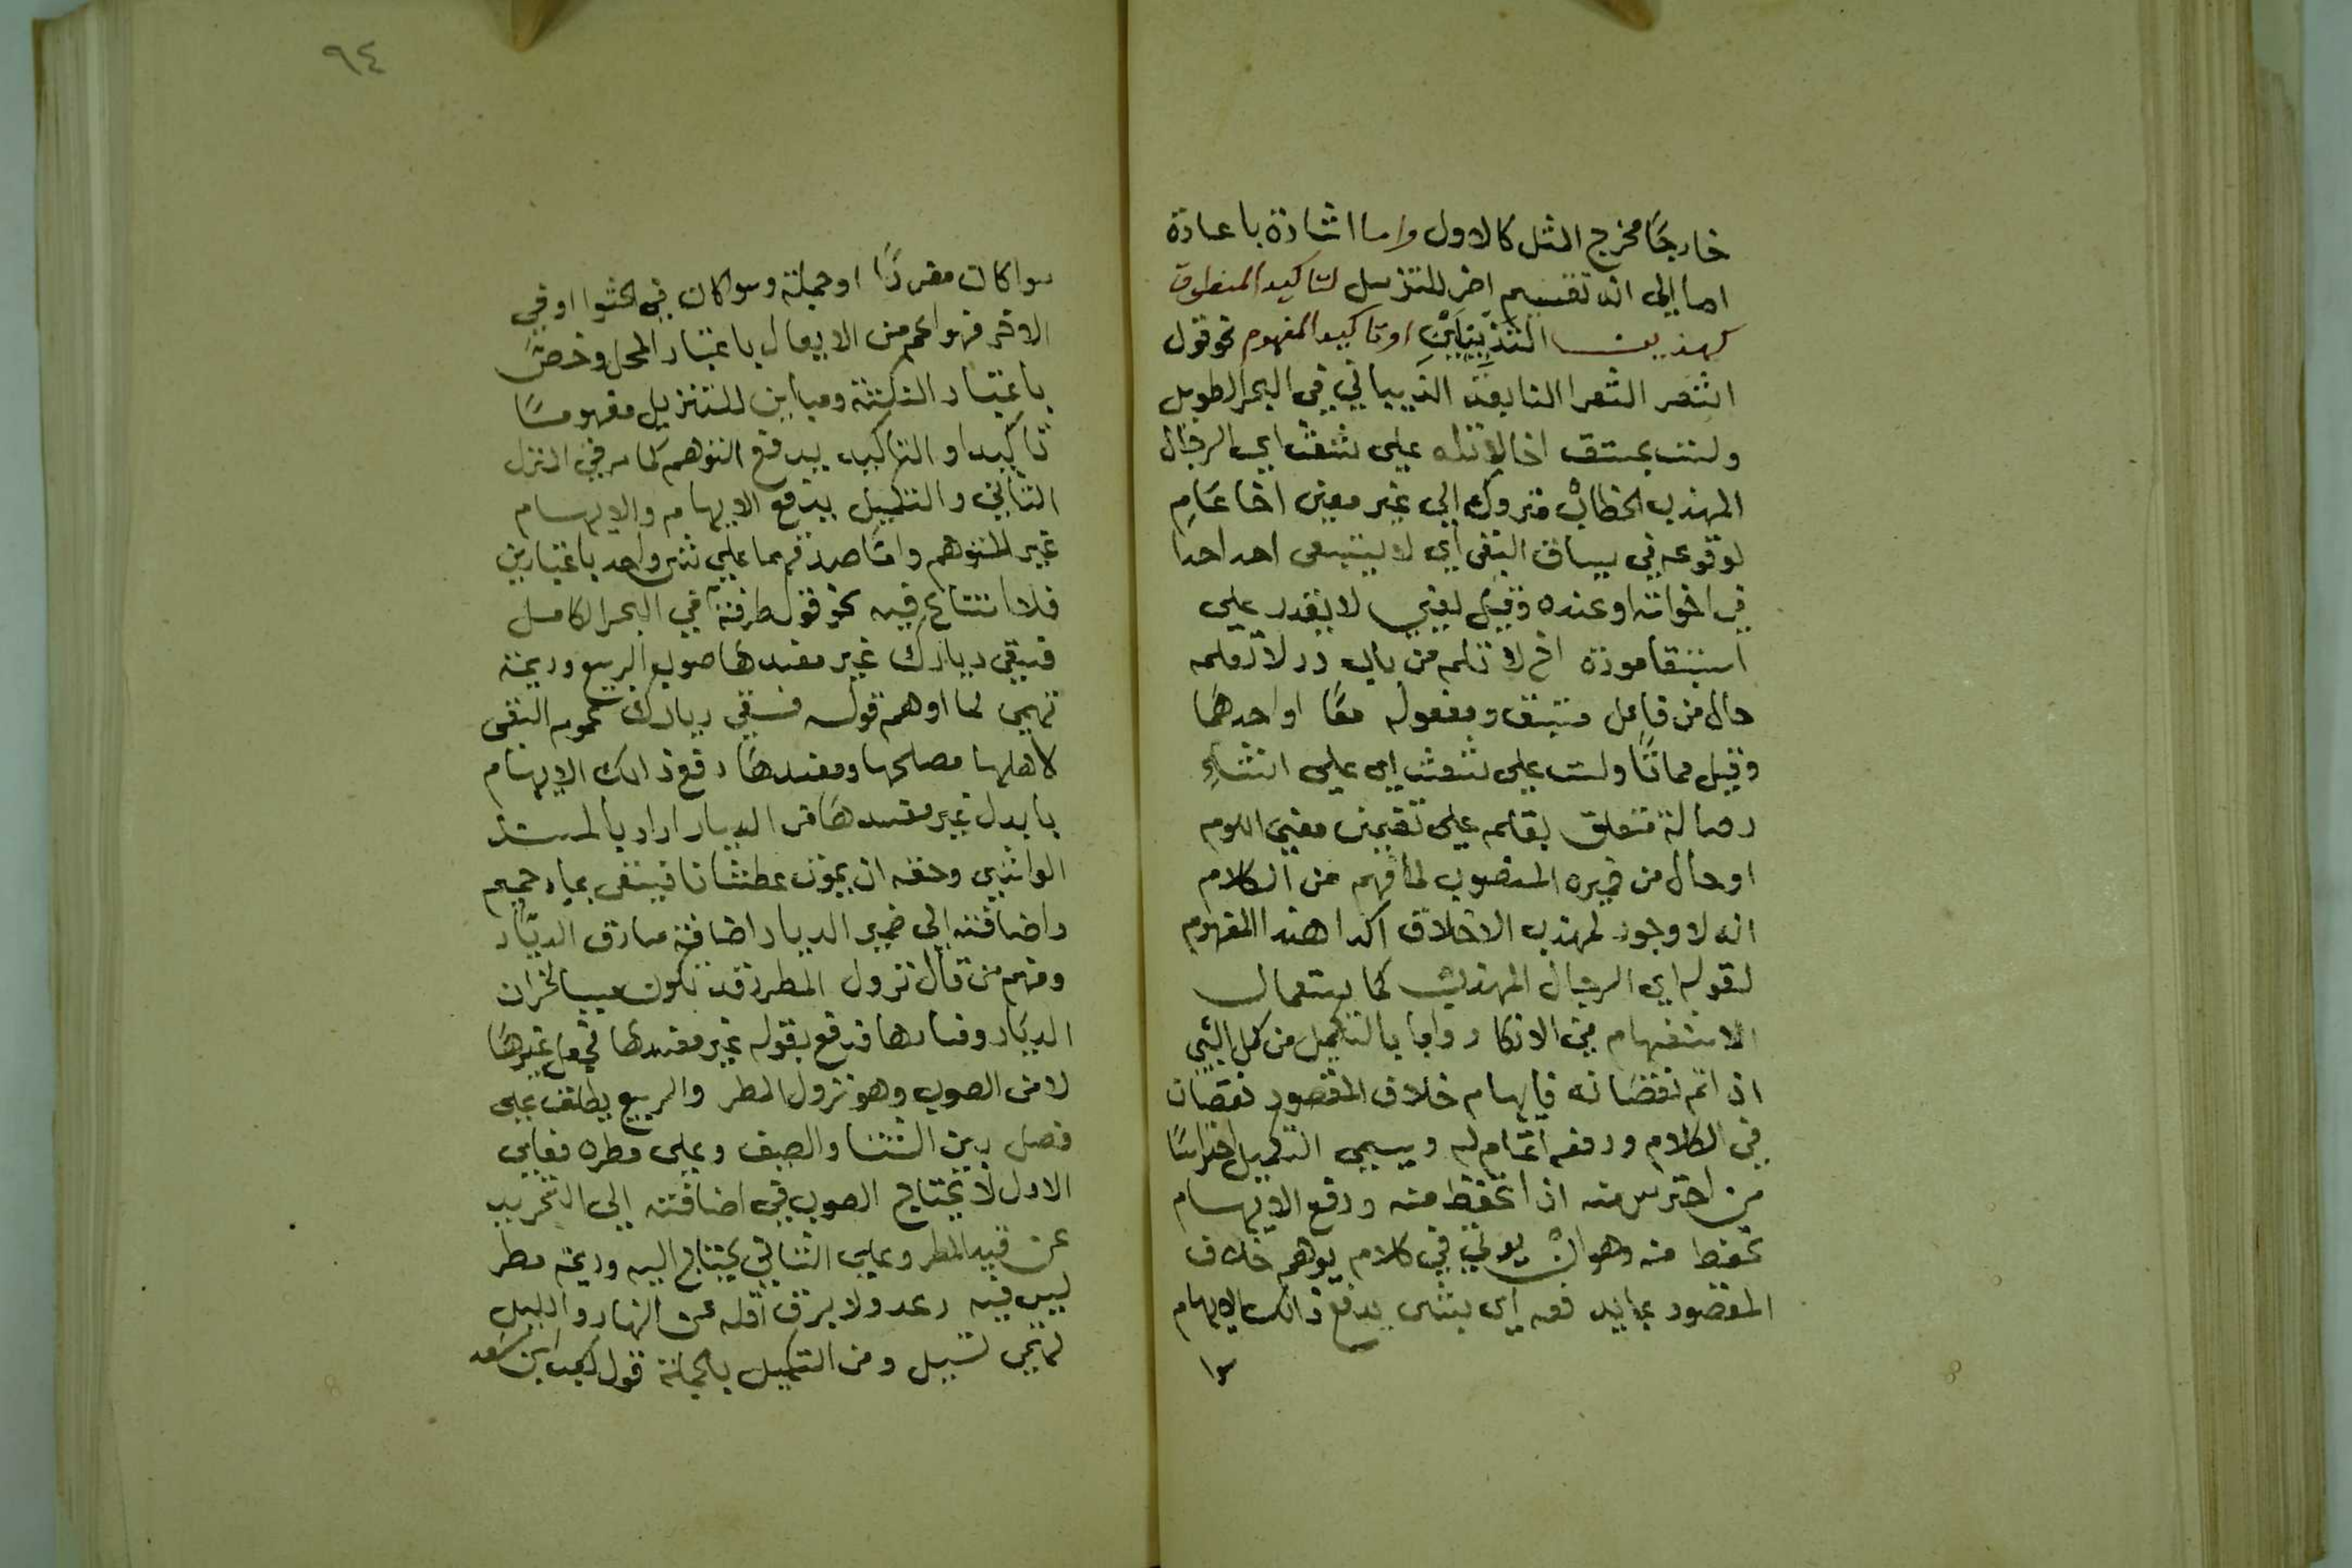 خارجًا مخرج المثل كالاول واما اشارة باعادة
اما الى انه تقسيم اخر للتذييل لتاكيد المنطوق
كهذين التذييلين او تاكيد المفهوم نحو قول
اشعر الشعرا النابغة الذبياني في البحر الطويل
ولست بمستبق اخا لا تلمه على شعث اي الرجال
المهذب الخطاب متروك الى غير معين اخا عام
لوقوعه في سياق النفي اي لا يستبقى احد احدا
في اخواته او عنده وقيل يعني لا يقدر على
استبقا مودة اخ لا تلمه من باب رد لا تعلمه
حال من فاعل مستبق ومفعوله معًا او احدهما
وقيل مما ولست على شعث اي على انتشار
متعلق بتلمه على تضمين معنى اللوم
او حال من ضميره المنصوب لما فهم من الكلام
انه لا وجود لمهذب الاخلاق اكد هذا المفهوم
لقوله اي الرجال المهذب كما يستعمال
الاستفهام في الانكار واما بالتكميل من كمل الشي
اذا اتم نقصانه فايهام خلاف المقصود نقصان
في الكلام ورفعه اتمام له ويسمى التكميل احتراسًا
من احترس منه اذا تحفظ منه ورفع الايهام
تحفظ منه وهو ان يوتى في كلام يوهم خلاف
المقصود بما يدفعه اي بشى يدفع ذالك الايهام
سوا
٩٤
سوا كان مفردًا او جملة وسوا كان في الحشو او في
الاخر فهو اعم من الايغال باعتبار المحل وخص
باعتبار النكتة ومباين للتذييل مفهومًا
تاكيدا والتاكيد يدفع التوهم كما مر في
الثاني والتكميل يدفع الايهام والايهام
غير التوهم واما صدقهما على شى واحد باعتبارين
فلا امتناع فيه نحو قول طرفة في البحر الكامل
فسقى ديارك غير مفسدها صوب الربيع وديمة
تهمى لما اوهم قوله فسقى ديارك عموم السقى
لاهلها مصلحها ومفسدها دفع ذالك الايهام
بابدل غير مفسدها من الديار اراد بالمفسد
الواشي وحقه ان يموت عطشانا فيسقى بماء حميم
واضافته الى ضمير الديار اضافة سارق الديار
ومنهم من قال نزول المطر قد يكون سببا لخراب
الديار وفسادها فدفع بقوله غير مفسدها
لا من الصوب وهو نزول المطر والربيع يطلق على
فصل بين الشتا والصيف وعلى مطره فعلى
الاول لا يحتاج الصوب في اضافته الى التجريد
عن قيد المطر وعلى الثاني يحتاج اليه وديمة مطر
ليس فيه رعد ولا برق اقله ثلث النهار والليل
تهمى تسيل ومن التكميل بالجملة قول كعب ابن سعد